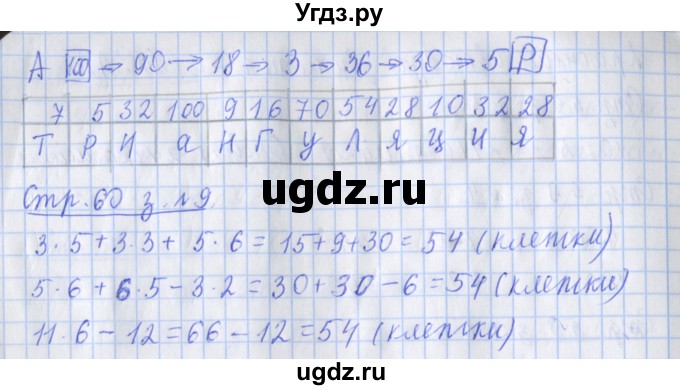 Угдз.ру
А 100 → 90 → 18 → 3 → 36 → 30 → 5 Р
7 5 32 100 9 16 70 54 28 10 32 28
Т Р И А Н Г У Л Я Ц И Я
Стр. 60 з. №9
3·5+3·3+5·6=15+9+30=54 (клетки)
5·6+6·5-3·2=30+30-6=54 (клетки)
11·6-12=66-12=54 (клетки)
ugdz.ru
ugdz.ru
Угдз.ру